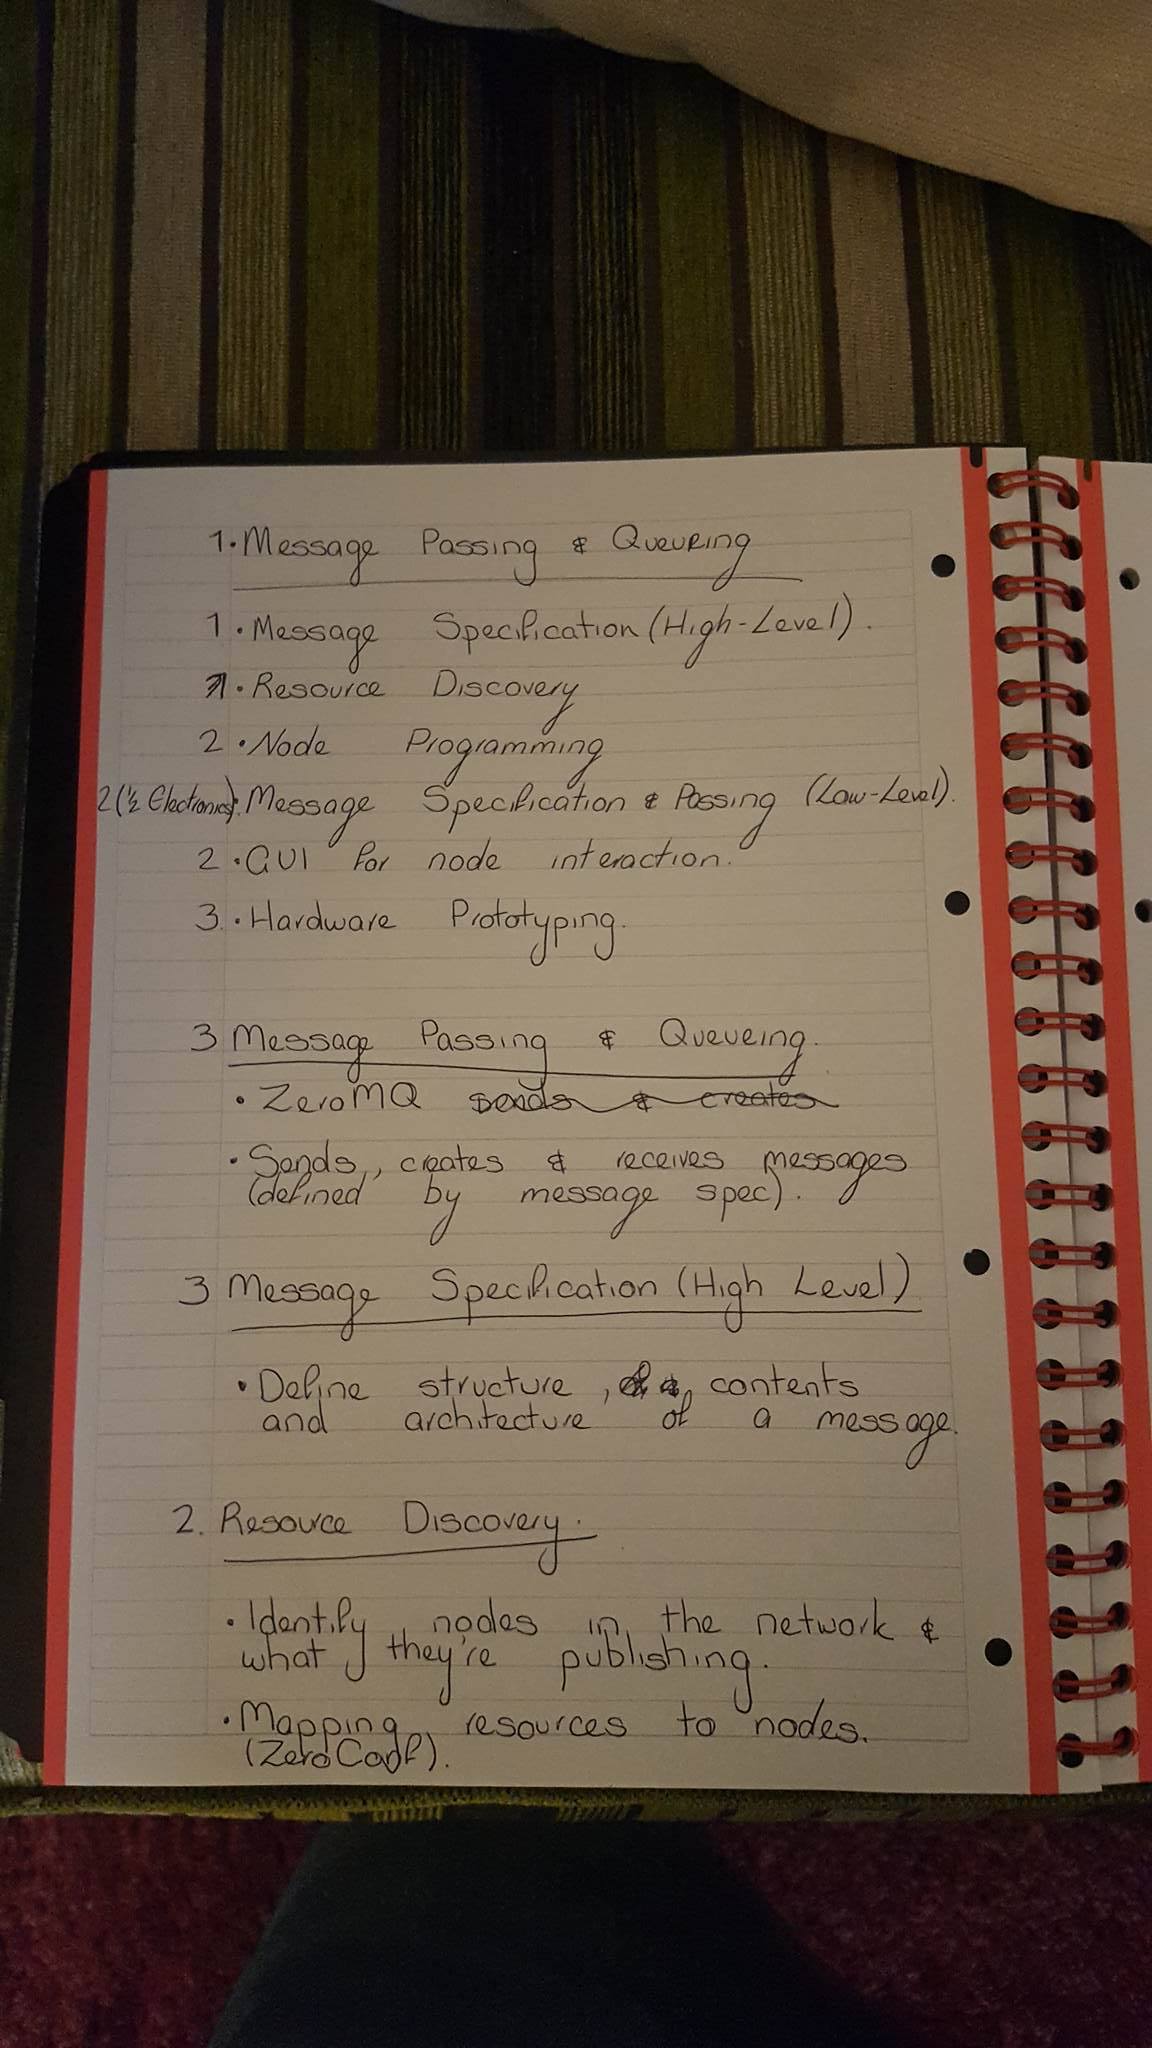 1. Message Passing & Queueing
1 • Message Specification (High-Level).
1 • Resource Discovery
2 • Node Programming
2 (½ Electronics) • Message Specification & Passing (Low-Level).
2 • GUI for node interaction.
3 • Hardware Prototyping.
3 Message Passing & Queueing.
• ZeroMQ sends & creates
• Sends, creates & receives messages
(defined by message spec).
3 Message Specification (High Level)
• Define structure, contents
and architecture of a message.
2. Resource Discovery.
• Identify nodes in the network &
what they're publishing.
• Mapping resources to nodes.
(ZeroConf).